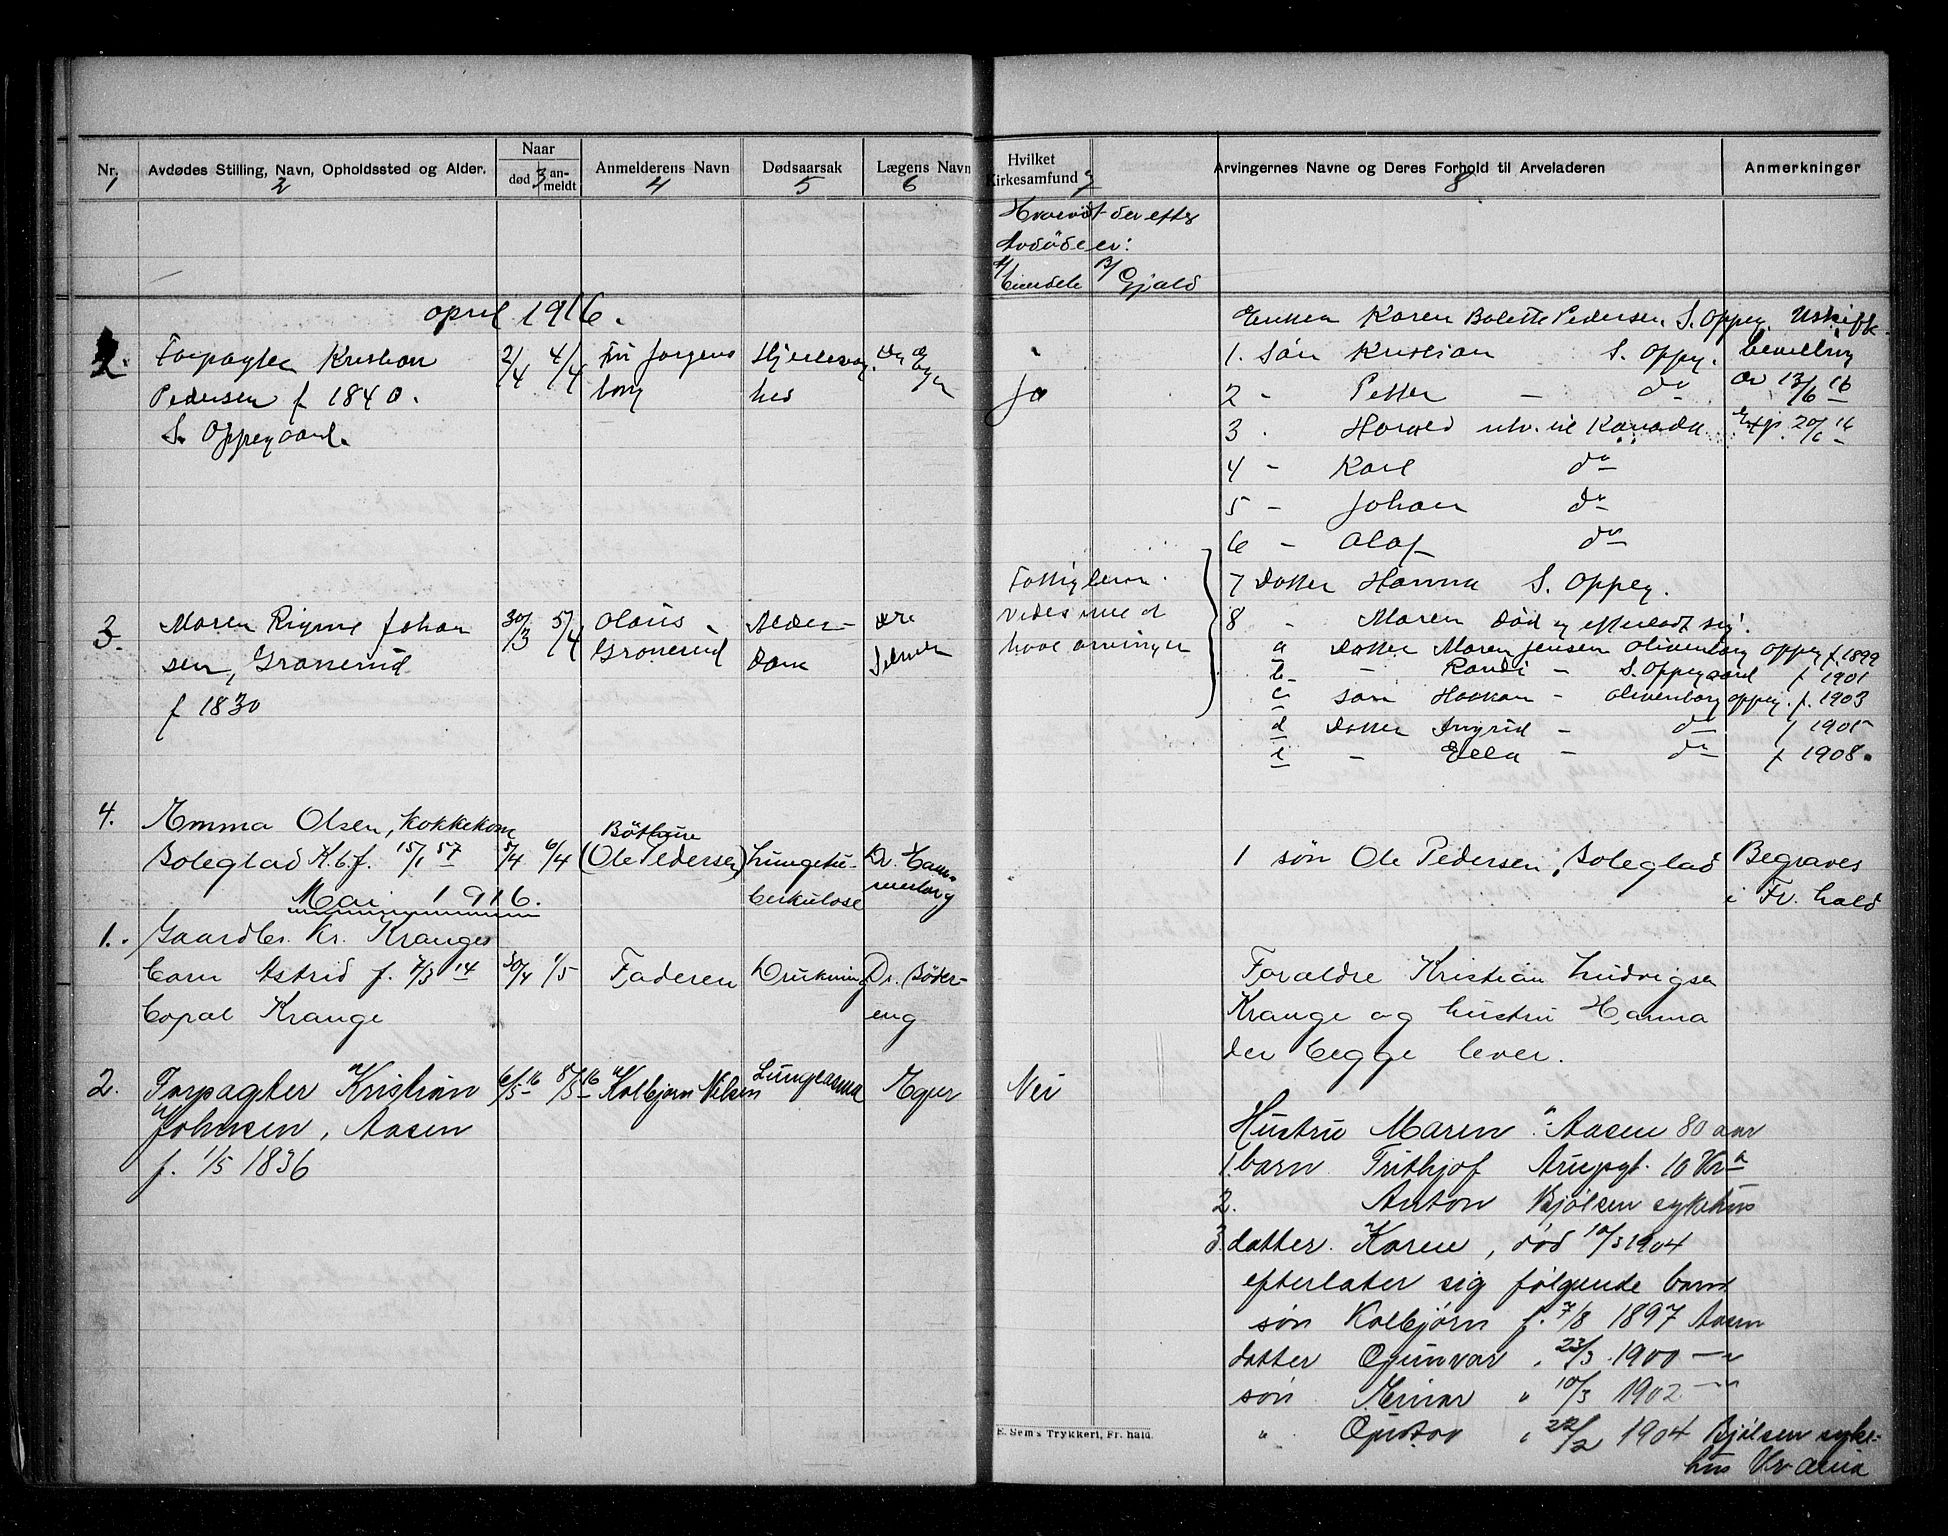 Nr. Avdødes Stilling, Navn, Opholdssted og Alder. Naar død an-meldt Anmelderens Navn Dødsaarsak Lægens Navn Hvilket Kirkesamfund Arvingernes Navne og Deres Forhold til Arveladeren Anmerkninger
1 2 3 4 5 6 7 8
Hvorvidt der efter
Avdøde er:
A/ Eiendele B/ Gjæld
april 1916.
2. Forpagter Kristian 2/4 4/4 Fru Jørgens
Pedersen f 1840. borg
S. Oppegaard.
Hjertesvag
hed
Dr Eger
Ja
Enken Karen Bolette Pedersen, S. Oppeg. Uskifte-
1. Søn Kristian S. Oppg. bevilling
2 - Petter - do av 13/6 16
3 . Harald utv. til Kanada Exp. 20/6 16
4 - Karl do
5 - Johan do
6 - Olaf do
7 Datter Hanna S. Oppeg.
8 - Maren død og efterladt sig:
a Datter Maren Jensen Olivenborg Oppeg f. 1899
b - Randi - S. Oppegaard f 1901
c Søn Haakon - Olivenborg Oppeg. f. 1903
d Datter Ingrid - do f 1905
e - Ella - do f 1908.
3. Maren Rigmo Johan 30/3 5/4 Olaus Alder-
sen, Grønerud Grønerud dom
f 1830
Fattiglem.
vides ikke at
have arvinger
4. Emma Olsen, kokkekone
Soleglad K.b.f. 15/1 57 5/4 6/4 (Ole Pedersen) Lungetu-
berkulose
Dr. Ham-
merborg
1 søn Ole Pedersen, Soleglad Begraves
i Fr. hald
Mai 1916.
1. Gaardbr. Kr. Kranges
barn Astrid f. 7/3 14 30/4 1/5 Faderen Drukning Dr. Bøder-
Copal Krange eng
Foraldre Kristian Ludvigsen
Krange og hustru Hanna
der begge lever.
2. Forpagter Kristian 6/5 16 8/5 16 Kolbjørn Nilsen Lungeasma Eger Nei
Johnsen, Aasen
f. 1/5 1836
Hustru Maren Aasen 80 aar
1. barn Frithjof Arupsgt. 10 Kra
2. Anton Bjølsen sykehus
3. datter Karen, død 10/3 1904
efterlater sig følgende barn
søn Kolbjørn f. 7/8 1897 Aasen
datter Gunvor " 23/3 1900 - "
søn Einar " 10/3 1902 - "
" Gustav " 22/2 1904 Bjølsen syke-
hus Kr ania
E. Sem's Trykkeri, Fr. hald.